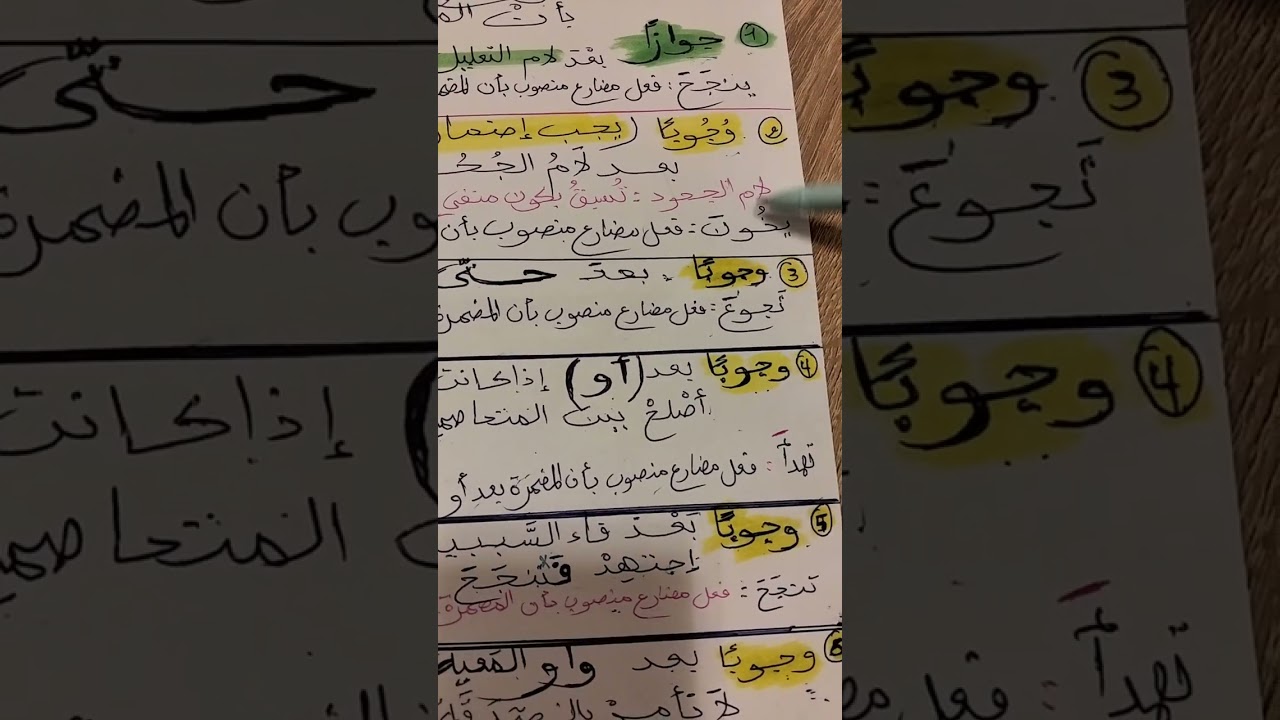 بأنْ
① جوازًا بعْدَ لام التعليل
ينجَحَ : فعل مضارع منصوب بأن المضم
② وُجُوبًا (يجب إضمار
بعد لَامُ الجُحُ
لام الجحود : تُسبَقُ بكون منفي
يخُونَ : فعل مضارع منصوب بأن
③ وجوبًا . بعدَ حتّى
تَجوعَ : فعل مضارع منصوب بأن المضمرة
④ وجوبًا بعد (أو) إذا كانت
أصْلحْ بينَ المتخاصمي
تهدأَ : فعل مضارع منصوب بأن المضمَرَة بعد أو
⑤ وجوبًا بَعْدَ فاء السَّببي
اِجتهِدْ فتنجَحَ
تنجَحَ : فعل مضارع منصوب بأن المضمرة
⑥ وجوبًا بعد واو المَعية
لاَ تأمرْ بالصدق